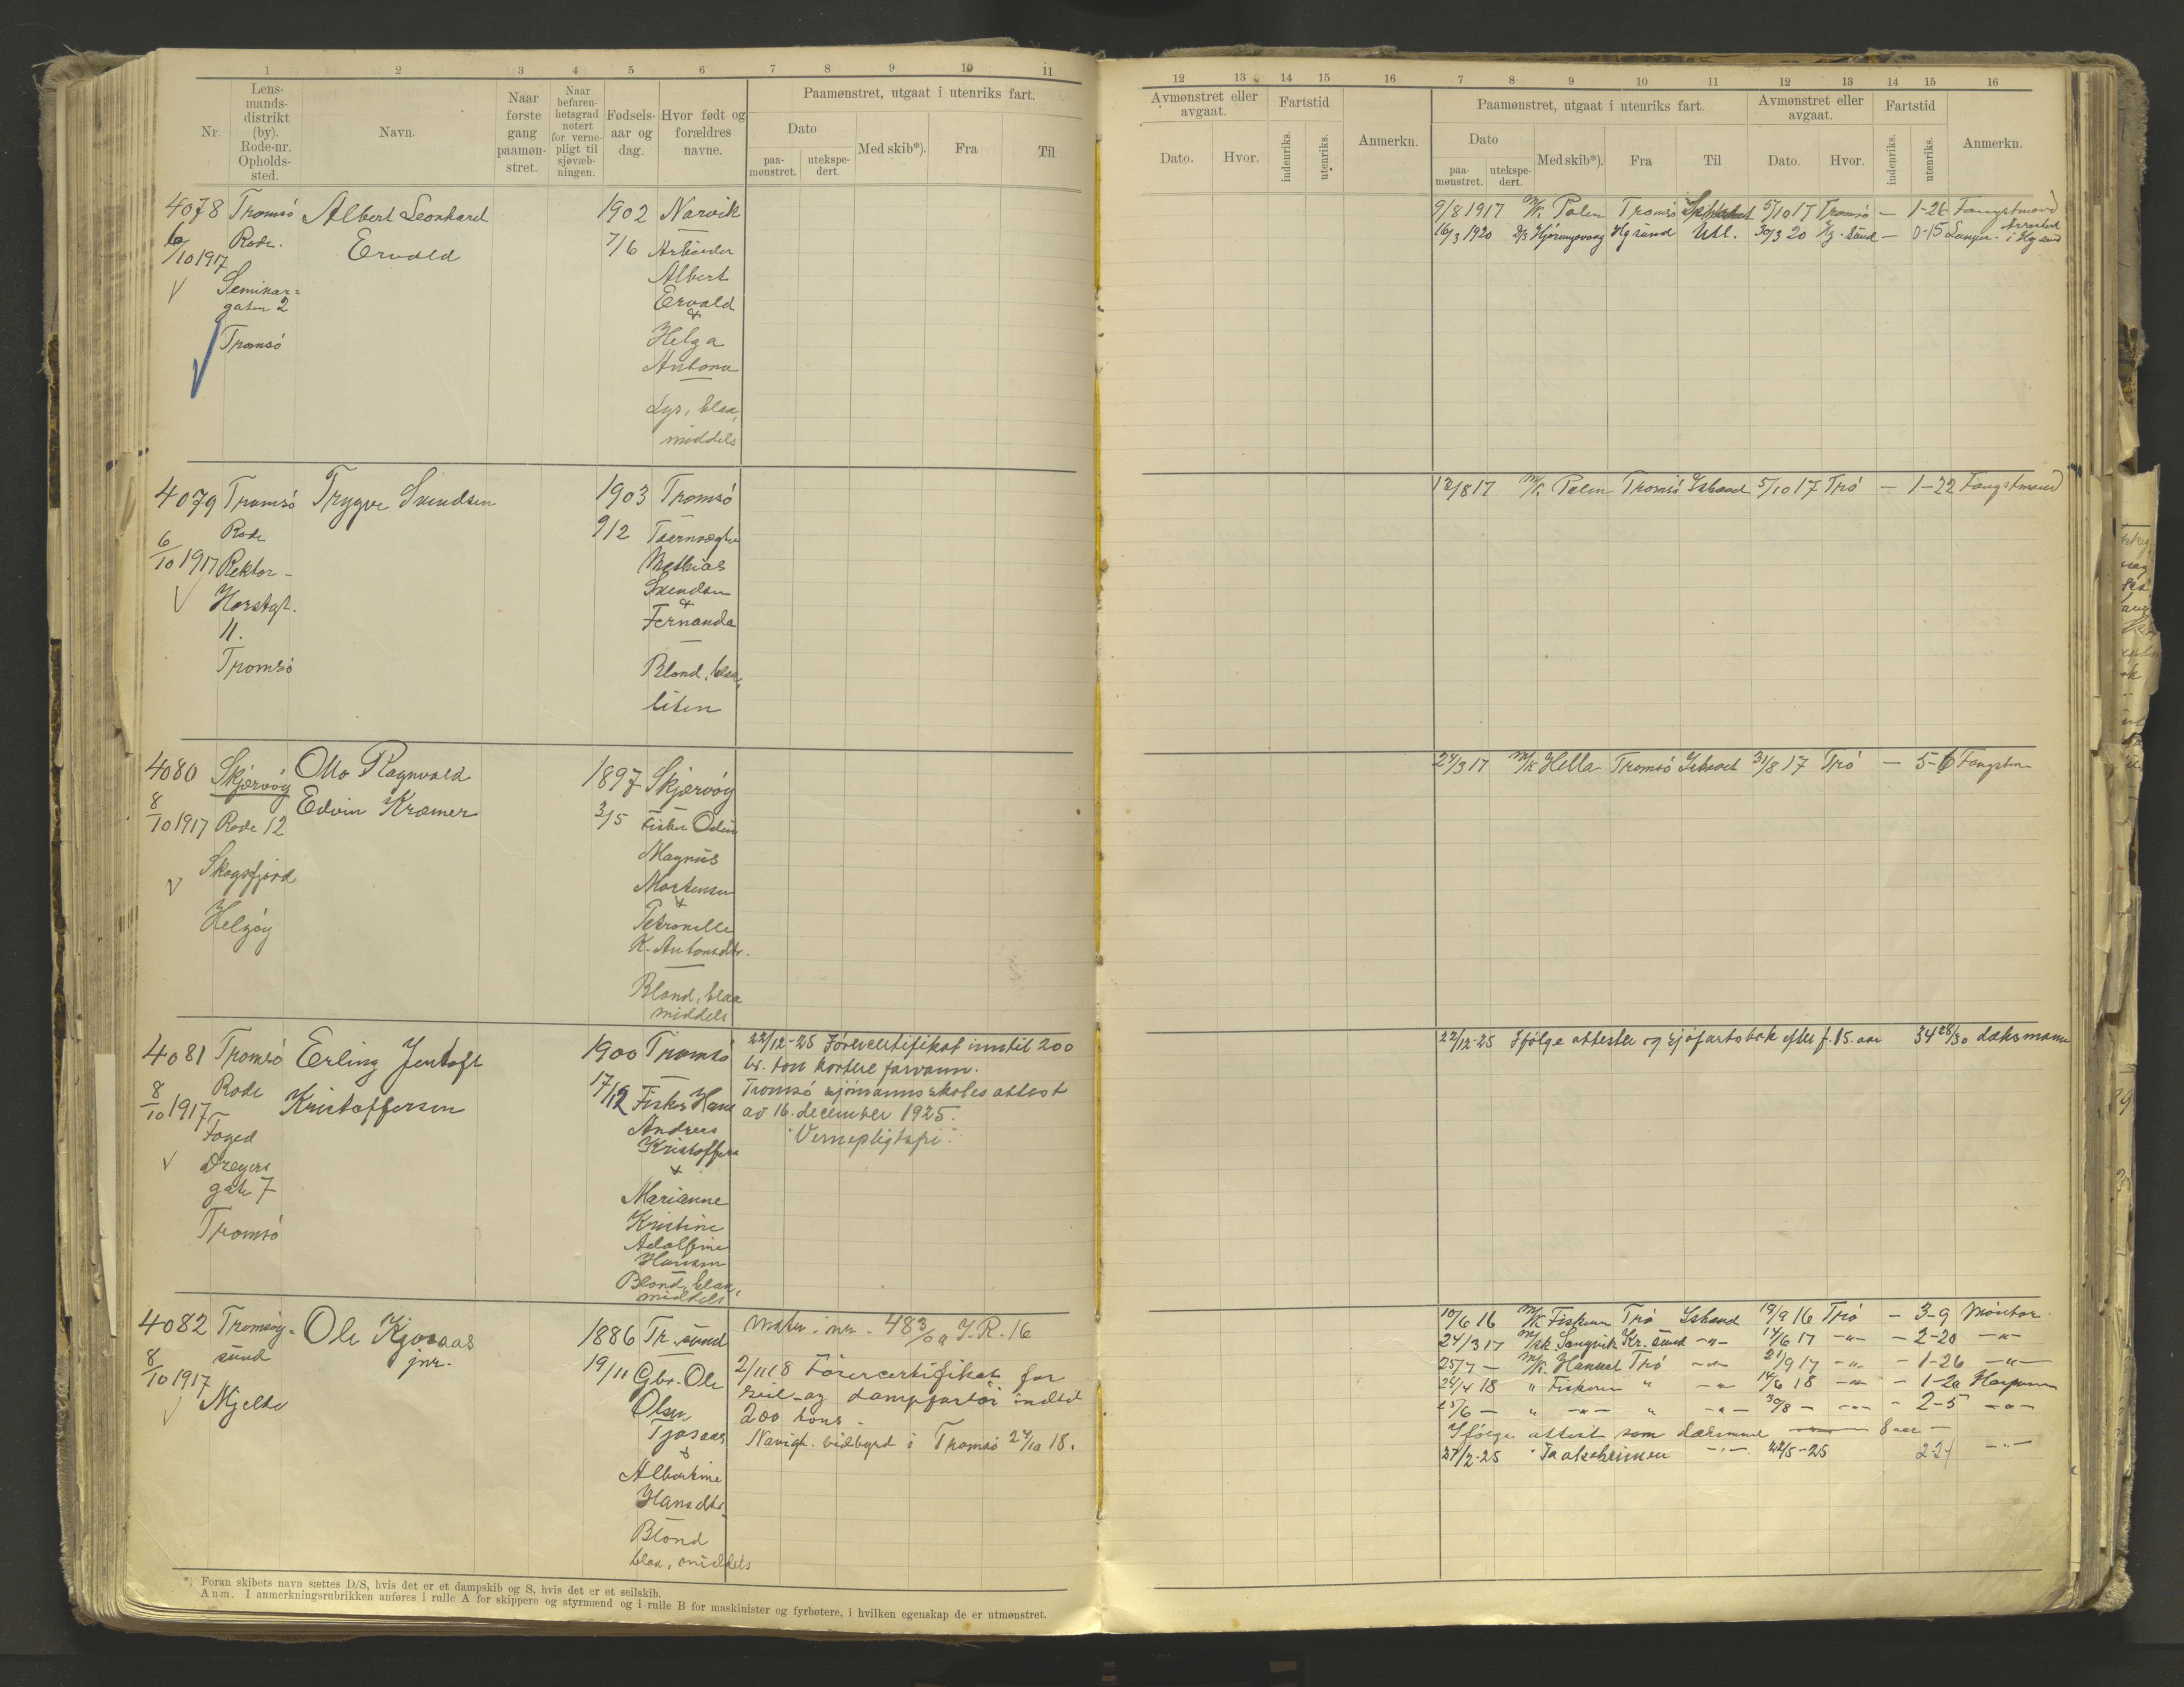 1 2 3 4 5 6 7 8 9 10 11
Nr.
Lens-
mands-
distrikt
(by).
Rode-nr.
Opholds-
sted.
Navn.
Naar
første
gang
paamøn-
stret.
Naar
befaren-
hetsgrad
notert
for verne-
pligt til
sjøvæb-
ningen.
Fødsels-
aar og
dag.
Hvor født og
forældres
navne.
Paamønstret, utgaat i utenriks fart.
Dato
paa-
mønstret.
utekspe-
dert.
Med skib*).
Fra
Til
4078 Tromsö Albert Leonhard 1902 Narvik
6/10 1917 Rode. Ervald 7/6 Arbeider
Seminar=
gaten 2
Tromsö
Albert
Ervald
&
Helga
Antona
Lys, blaa,
middels
4079 Tromsö Trygve Svendsen 1903 Tromsö
6/10 1917 Rode 9/2
Rektor-
Horstgt.
11.
Tromsö
Mathias
Svendsen
&
Fernanda
Blond, blaa,
liten
4080 Skjærvöy Otto Ragnvald 1897 Skjærvöy
8/10 1917 Rode 12 Edvin Kræmer 3/5 Fisker Odin
Skogsfjord
Helgöy
Magnus
Mortensen
&
Petronelle
K. Antonsdtr.
Blond, blaa
middels
4081 Tromsö Erling Jentoft 1900 Tromsö 22/12-25 Förercertifikat inntil 200
br. ton kortere farvann.
8/10 1917 Rode Kristoffersen 17/12 Fisker Hans Tromsö sjömannsskoles attest
av 16. december 1925.
"Vernepligtsfri".
Foged
Dreyers
gate 7
Tromsö
Andreas
Kristoffersen
&
Marianne
Kristine
Adolfine
Hansen
Blond, blaa,
middels
4082 Tromsöy- Ole Kjosaas 1886 Tr.sund
sund jnr.
8/10 1917 Mjelde 19/11 Gbr. Ole 2/11 18 Förercertifikat for
seil- og dampfartöi indtil
200 tons -
Navigt. vidbyrd i Tromsö 24/10 18.
Olsen
&
Albertine
Hansdtr.
Blond
blaa, middels
*) Foran skibets navn sættes D/S, hvis det er et dampskib og S, hvis det er et seilskib.
Anm. I anmerkningsrubrikken anføres i rulle A for skippere og styrmænd og i rulle B for maskinister og fyrbøtere, i hvilken egenskap de er utmønstret.
12 13 14 15 16 7 8 9 10 11 12 13 14 15 16
Avmønstret eller
avgaat.
Dato.
Hvor.
Fartstid
indenriks.
utenriks.
Anmerkn.
Paamønstret, utgaat i utenriks fart.
Dato
paa-
mønstret.
utekspe-
dert.
Med skib*).
Fra
Til
Avmønstret eller
avgaat.
Dato.
Hvor.
Fartstid
indenriks.
utenriks.
Anmerkn.
9/8 1917 M/K Polen Tromsö 5/10 17 Tromsö - 1-26 Fangstmand
16/3 1920 D/S Hjörungavaag Hg sund Utl. 30/3 20 Hg. sund - 0-15
12/8 17 M/K Polen Tromsö Ishavet 5/10 17 Trö - 1-22 Fangstmand
24/3 17 M/K Hella Tromsö Ishavet 31/8 17 Trö - 5-6 Fangstm
22/12-25 Ifölge attester og sjöfartsbok efter f. 15. aar 34 28/30 dæksmann
10/6 16 M/K Fiskeren Trö Ishavet 19/9 16 Trö - 3-9
24/3 17 Kr.sund -"- 14/6 17 -"- - 2-20 -"-
25/7 - M/K Trö -"- 21/9 17 -"- - 1-26 -"-
24/4 18 " Fiskeren " -"- 14/6 18 -"- - 1-20
25/6 - " -"- " -"- 30/8 - -"- - 2-5 -"-
Ifölge attest som dæksmand 8 aar -
27/2-25 -"- 22/5-25